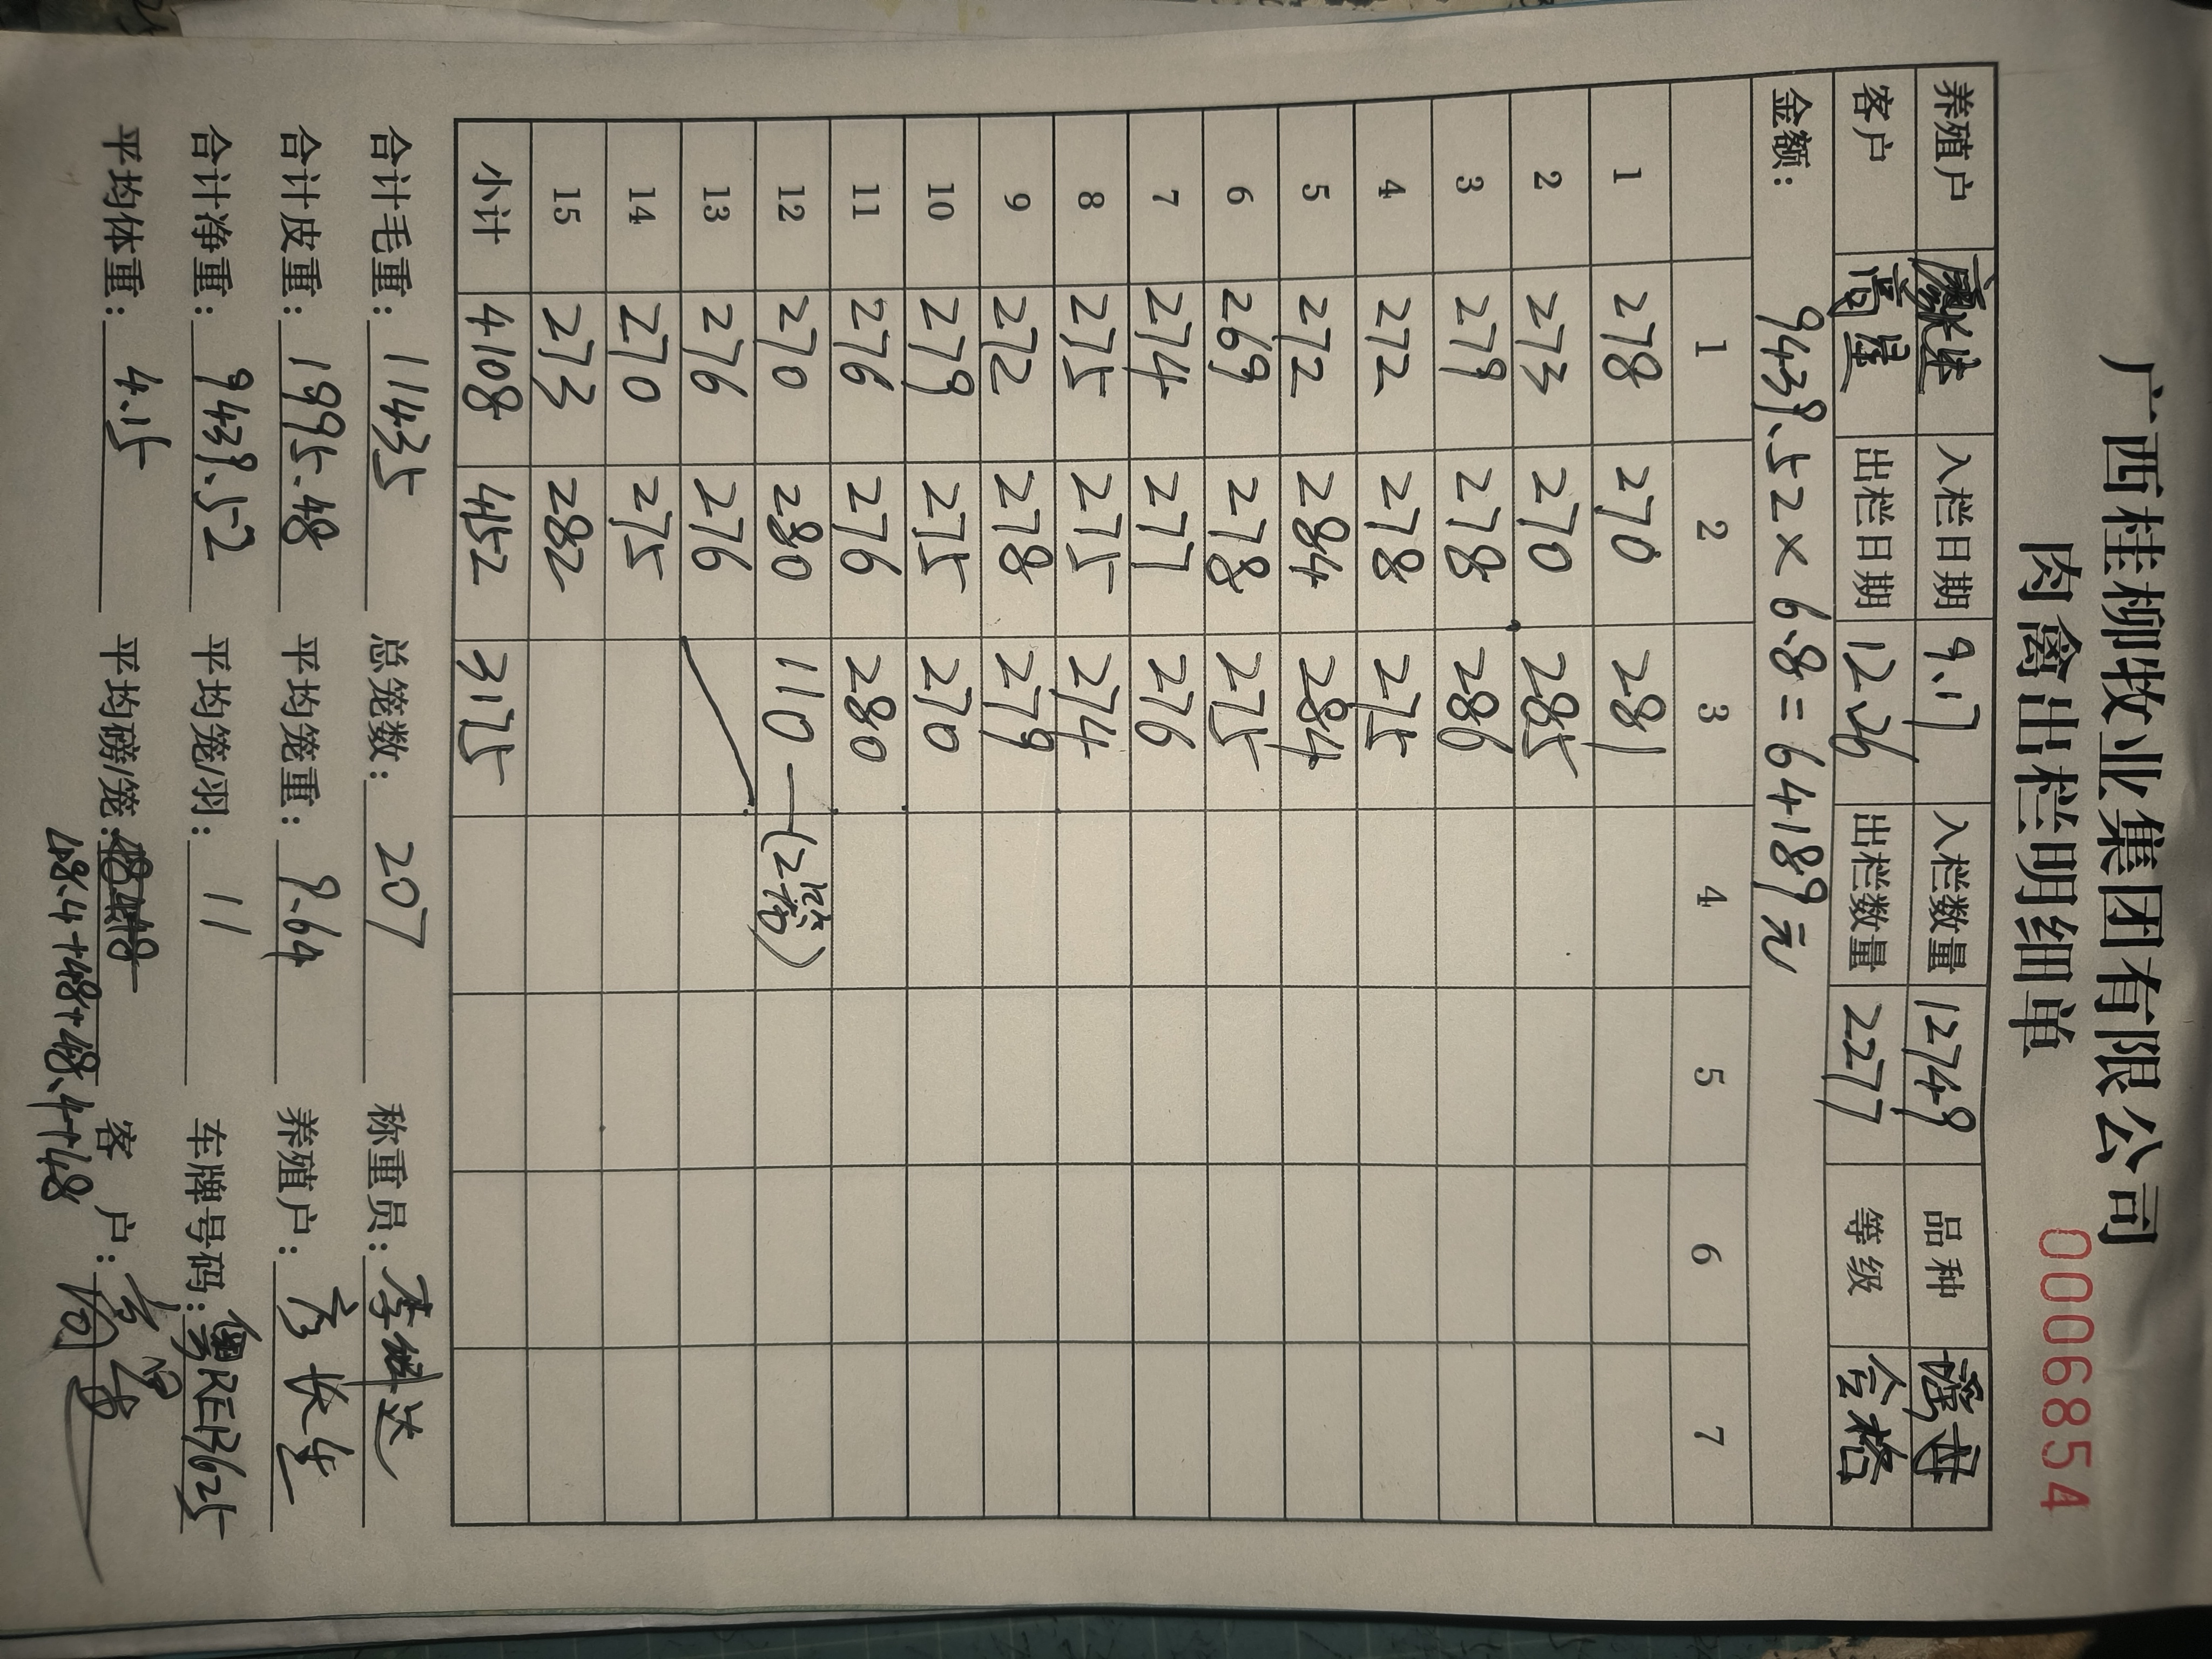 广西桂柳牧业集团有限公司
肉禽出栏明细单 0006854
养殖户 入栏日期 9.17 入栏数量 12749 品种
客户 尚星 出栏日期 12.26 出栏数量 2277 等级 合格
金额: 9439.52×6.8=64189元
1 2 3 4 5 6 7
1 278 270 281
2 273 270 285
3 279 278 286
4 272 278 275
5 272 284 284
6 269 278 275
7 274 277 276
8 275 275 274
9 272 278 279
10 279 275 270
11 276 276 280
12 270 280 110 —(2笼)
13 276 276
14 270 275
15 273 282
小计 4108 4152 3175
合计毛重: 11435 总笼数: 207 称重员: 李 达
合计皮重: 1995.48 平均笼重: 9.64 养殖户: 长生
合计净重: 9439.52 平均笼/羽: 11 车牌号码: 粤REB625
平均体重: 4.15 平均磅/笼: 客 户:
48.4+48+48.4+48